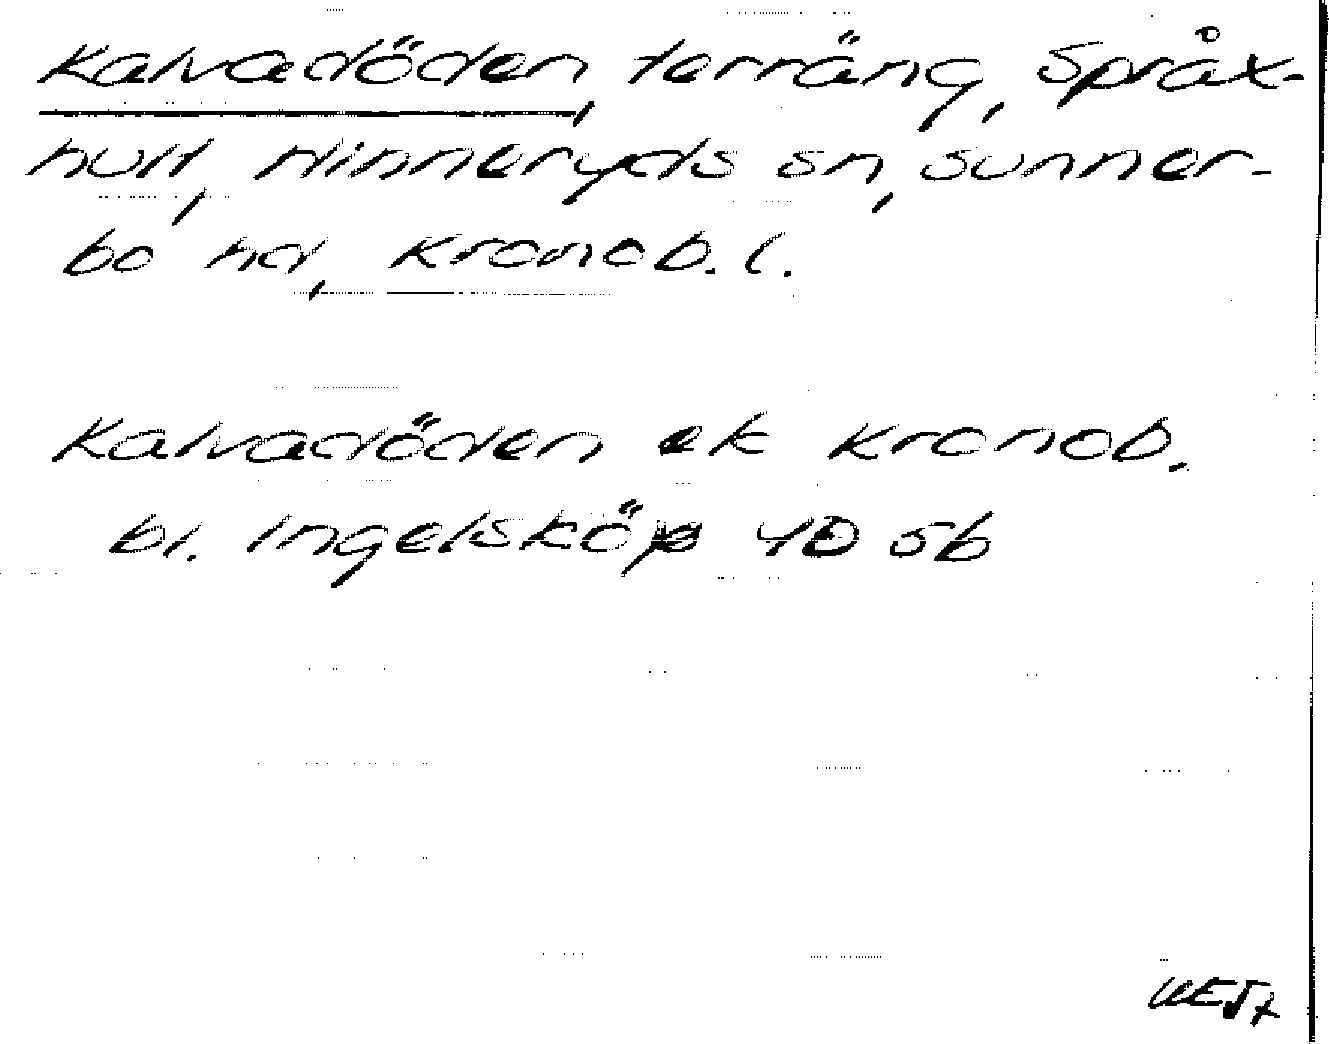 Kalvadöden, terräng, Språx-
hult, Hinneryds sn, Sunner-
bo hd, Kronob. l.
Kalvadöden ek Kronob.
bl. Ingelsköp 4D 5b